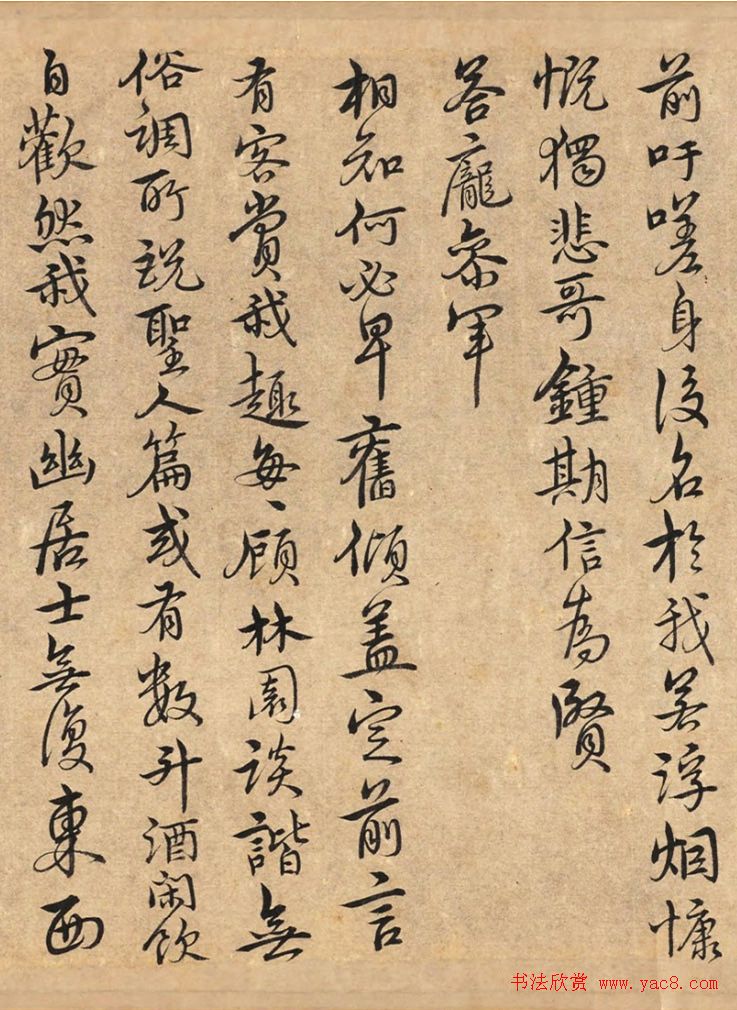 前吁嗟身後名於我若浮烟慷
慨獨悲哥鍾期信為賢
答龐參軍
相知何必早舊傾盖定前言
有客賞我趣每〻顧林園談諧無
俗調所說聖人篇或有數升酒閑飲
自歡然我實幽居士無復東西
书法欣赏 www.yac8.com